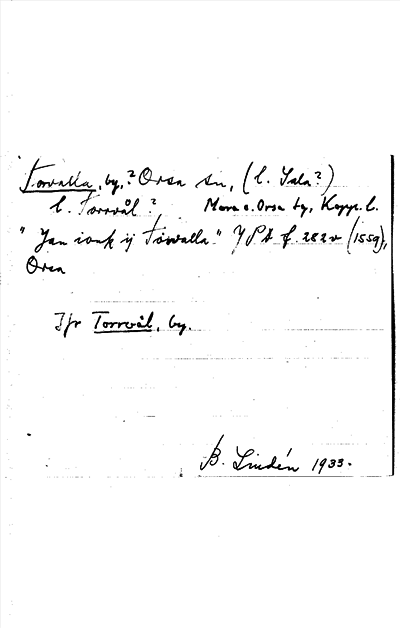 Torvalla, by,? Orsa sn, (l. Sala?)
l. Torrvål? Mora o. Orsa tg, Kopp. l.
"Jan ionß ij Torvalla." JPA f. 282v (1559),
Orsa
Jfr Torrvål, by.
B. Lindén 1933.